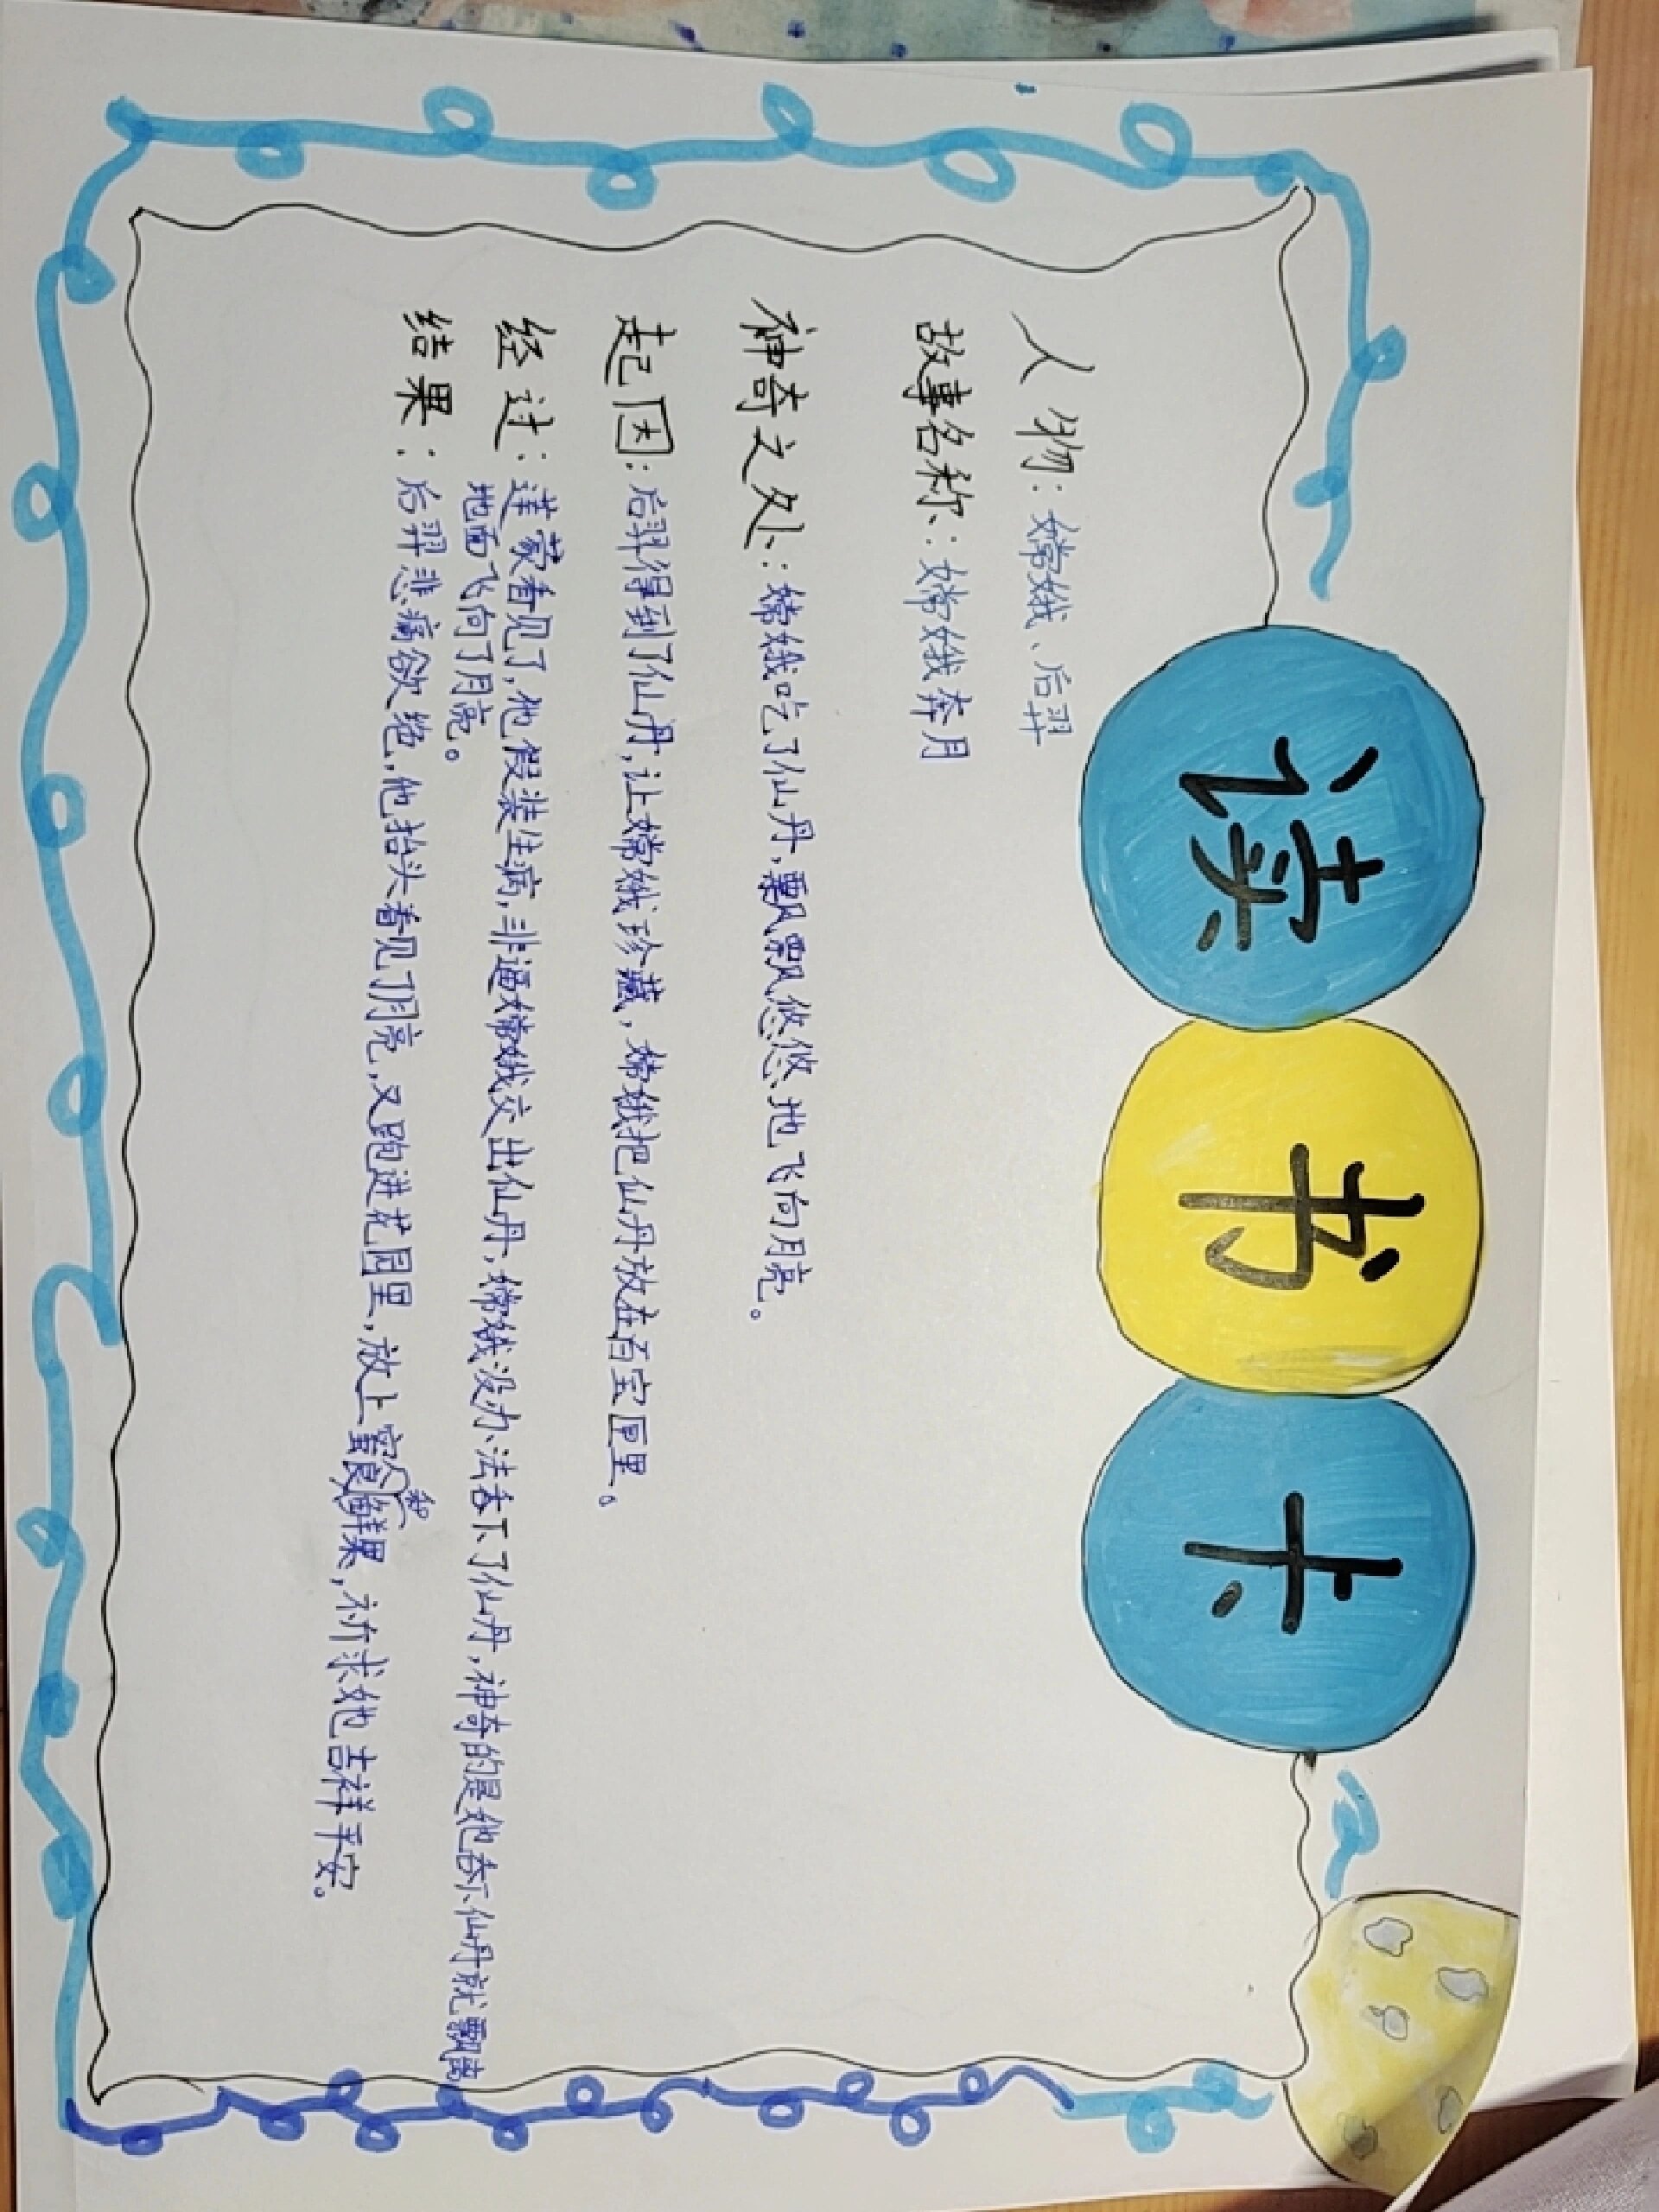 读书卡
人物：嫦娥、后羿
故事名称：嫦娥奔月
神奇之处：嫦娥吃了仙丹，飘飘悠悠地飞向月亮。
起因：后羿得到了仙丹，让嫦娥珍藏，嫦娥把仙丹放在百宝匣里。
经过：逢蒙看见了，他假装生病，非逼嫦娥交出仙丹，嫦娥没办法吞下了仙丹，神奇的是她吞下仙丹就飘离
地面飞向了月亮。
结果：后羿悲痛欲绝，他抬头看见了月亮，又跑进花园里，放上蜜食和鲜果，祈求她吉祥平安。